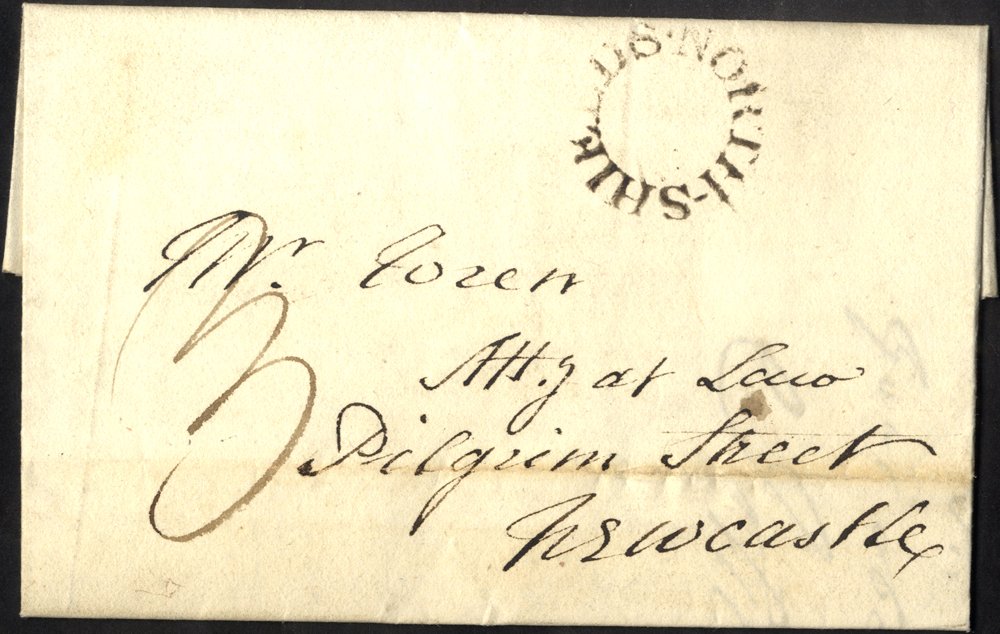 NORTH-SHIELDS
Mr. Foren
Att.y at Law
Pilgrim Street
Newcastle
3